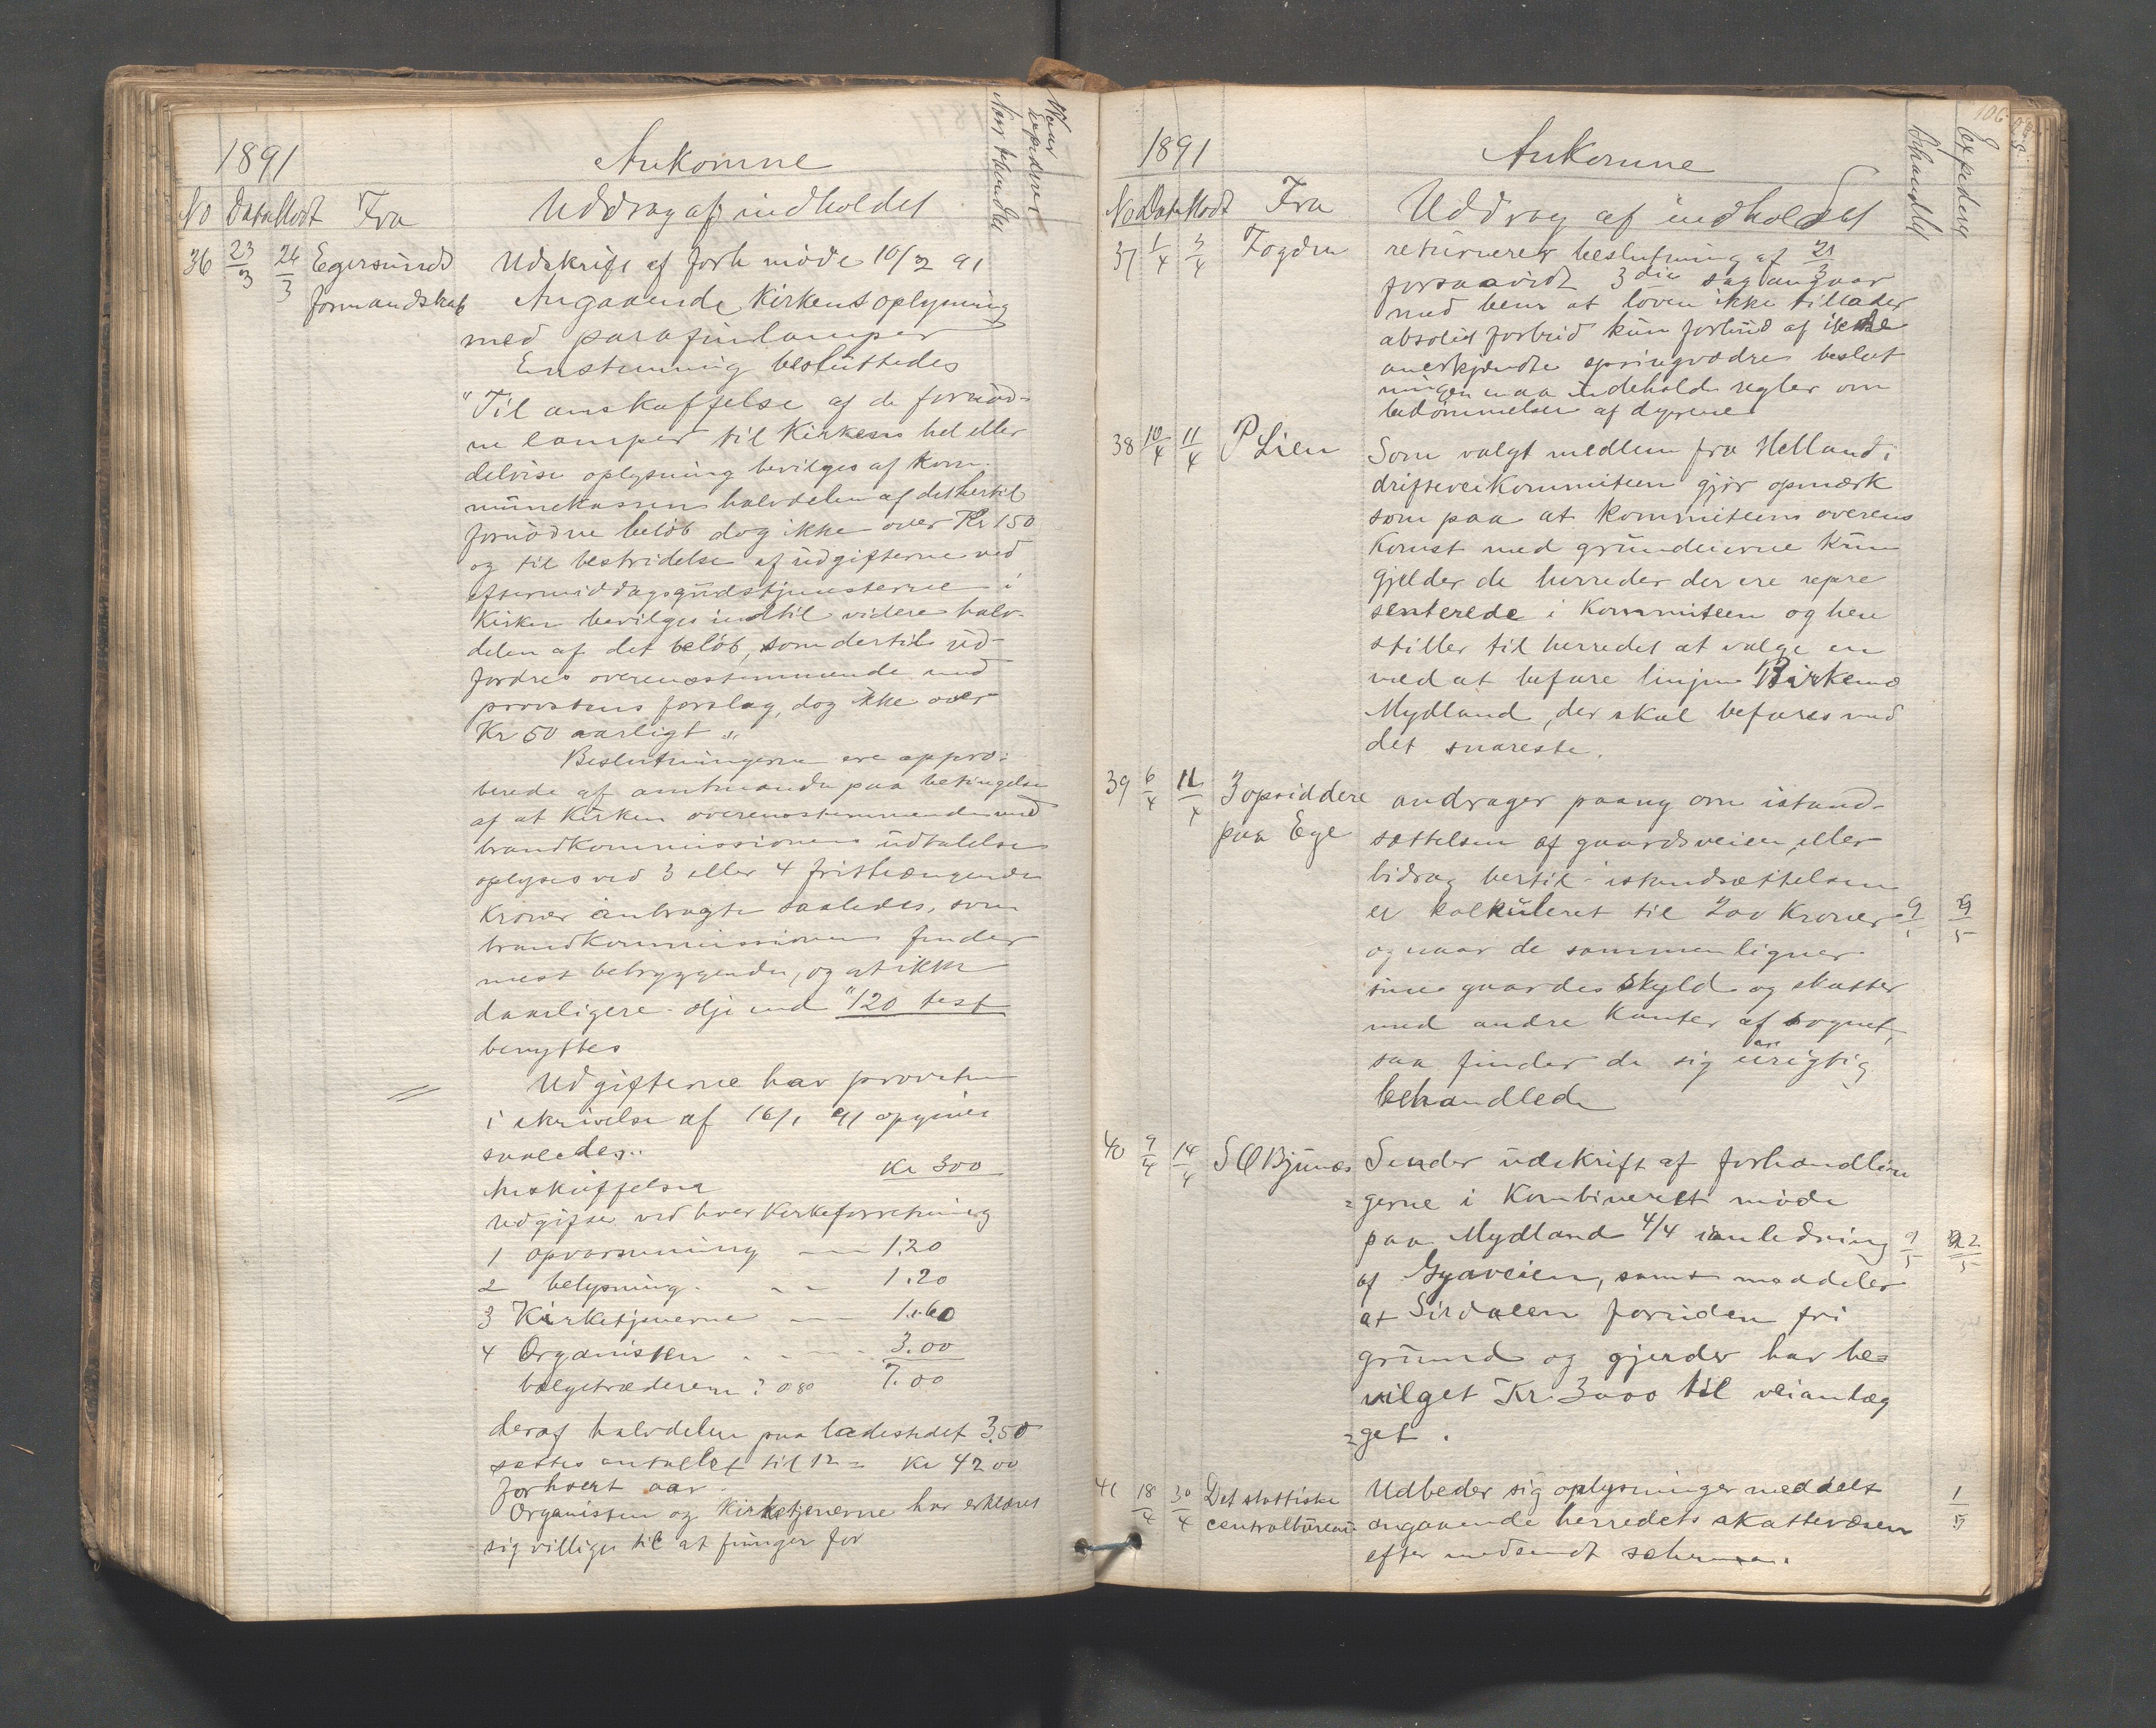 1891
Ankomne
Naar behandlet
Naar expederet
No Dato Modt Fra
Uddrag af indholdet
36 23/3 26/3 Egersunds formandskab
Udskrift af forh møde 10/3 91
Angaaende Kirkens oplysning
med parafinlamper
Enstemmig besluttedes
"Til anskaffelse af de fornød-
ne lamper til Kirkens hel eller
delvise oplysning bevilges af Kom-
munekassen halvdelen af det hertil
fornødne beløb dog ikke over Kr 150
og til bestridelse af udgifterne ved
eftermiddagsgudstjenesterne i
Kirken bevilges indtil videre halv-
delen af det beløb, som dertil ud-
fordres overensstemmende med
provstens forslag, dog ikke over
Kr 50 aarligt "
Beslutningerne ere appro-
berede af amtmanden paa betingelse
af at Kirken overensstemmende med
brandkommissionens udtalelse
oplyses ved 3 eller 4 frithængende
Kroner anbragte saaledes, som
brandkommissionen finder
mest betryggende, og at ikke
daarligere olje end "120 test
benyttes
Udgifterne har provsten
i skrivelse af 16/1 91 opgivet
saaledes:
Anskaffelse Kr 300
Udgifter ved hver Kirkeforretning
1 opvarmning — 1.20
2 belysning - - 1.20
3 Kirketjenerne — 1.60
4 Organisten - - - 3.00
bælgetræderen? 0 80 7.00
deraf halvdelen paa ladestedet 3,50
sættes antallet til 12 = Kr 42 00
for hvert aar.
Organisten og Kirketjenerne har erklæret
sig villige til at fungere for
106
1891
Ankomne
Behandlet
Expederet
No Dato Modt Fra
Uddrag af indholdet
37 1/4 3/4 Fogden
returnerer beslutning af 21/3
forsaavidt 3die sag angaar
med bem at loven ikke tillader
absolut forbud kun forbud af ikke
anerkjendte springvædre beslut
ningen maa indeholde regler om
bedømmelsen af dyrene
38 10/4 11/4 P Lien
Som valgt medlem fra Helland i
drifteveikommiteen gjør opmærk
som paa at kommiteens overens
komst med grundeierne kun
gjelder de herreder der ere repre
senterede i Kommiteen og hen
stiller til herredet at vælge en
ved at befare linjen Birkemo
Mydland, der skal befares med
det snareste.
39 6/4 11/4 3 opsiddere paa Ege
andrager paany om istand-
sættelsen af gaardsveien eller
bidrag hertil - istandsættelsen
er kalkuleret til 200 Kroner 9/5 29/5
og naar de sammenligner
sine gaardes skyld og skatter
med andre Kanter af sognet,
saa finder de sig urigtig
behandlede
40 9/4 14/4 S O Bjunes
Sender udskrift af forhandlin
=gerne i Kombineret møde
paa Mydland 4/4 i anledning 9/5 22/5
af Gyaveien, samt meddeler
at Sirdalen foruden fri
grund og gjerder har be=
vilget Kr 3000 til veianlæg
=get.
41 18/4 30/4 Det statistiske centralbureau
Udbeder sig oplysninger meddelt
angaaende herredets skattevæsen 1/5
efter medsendt schema.